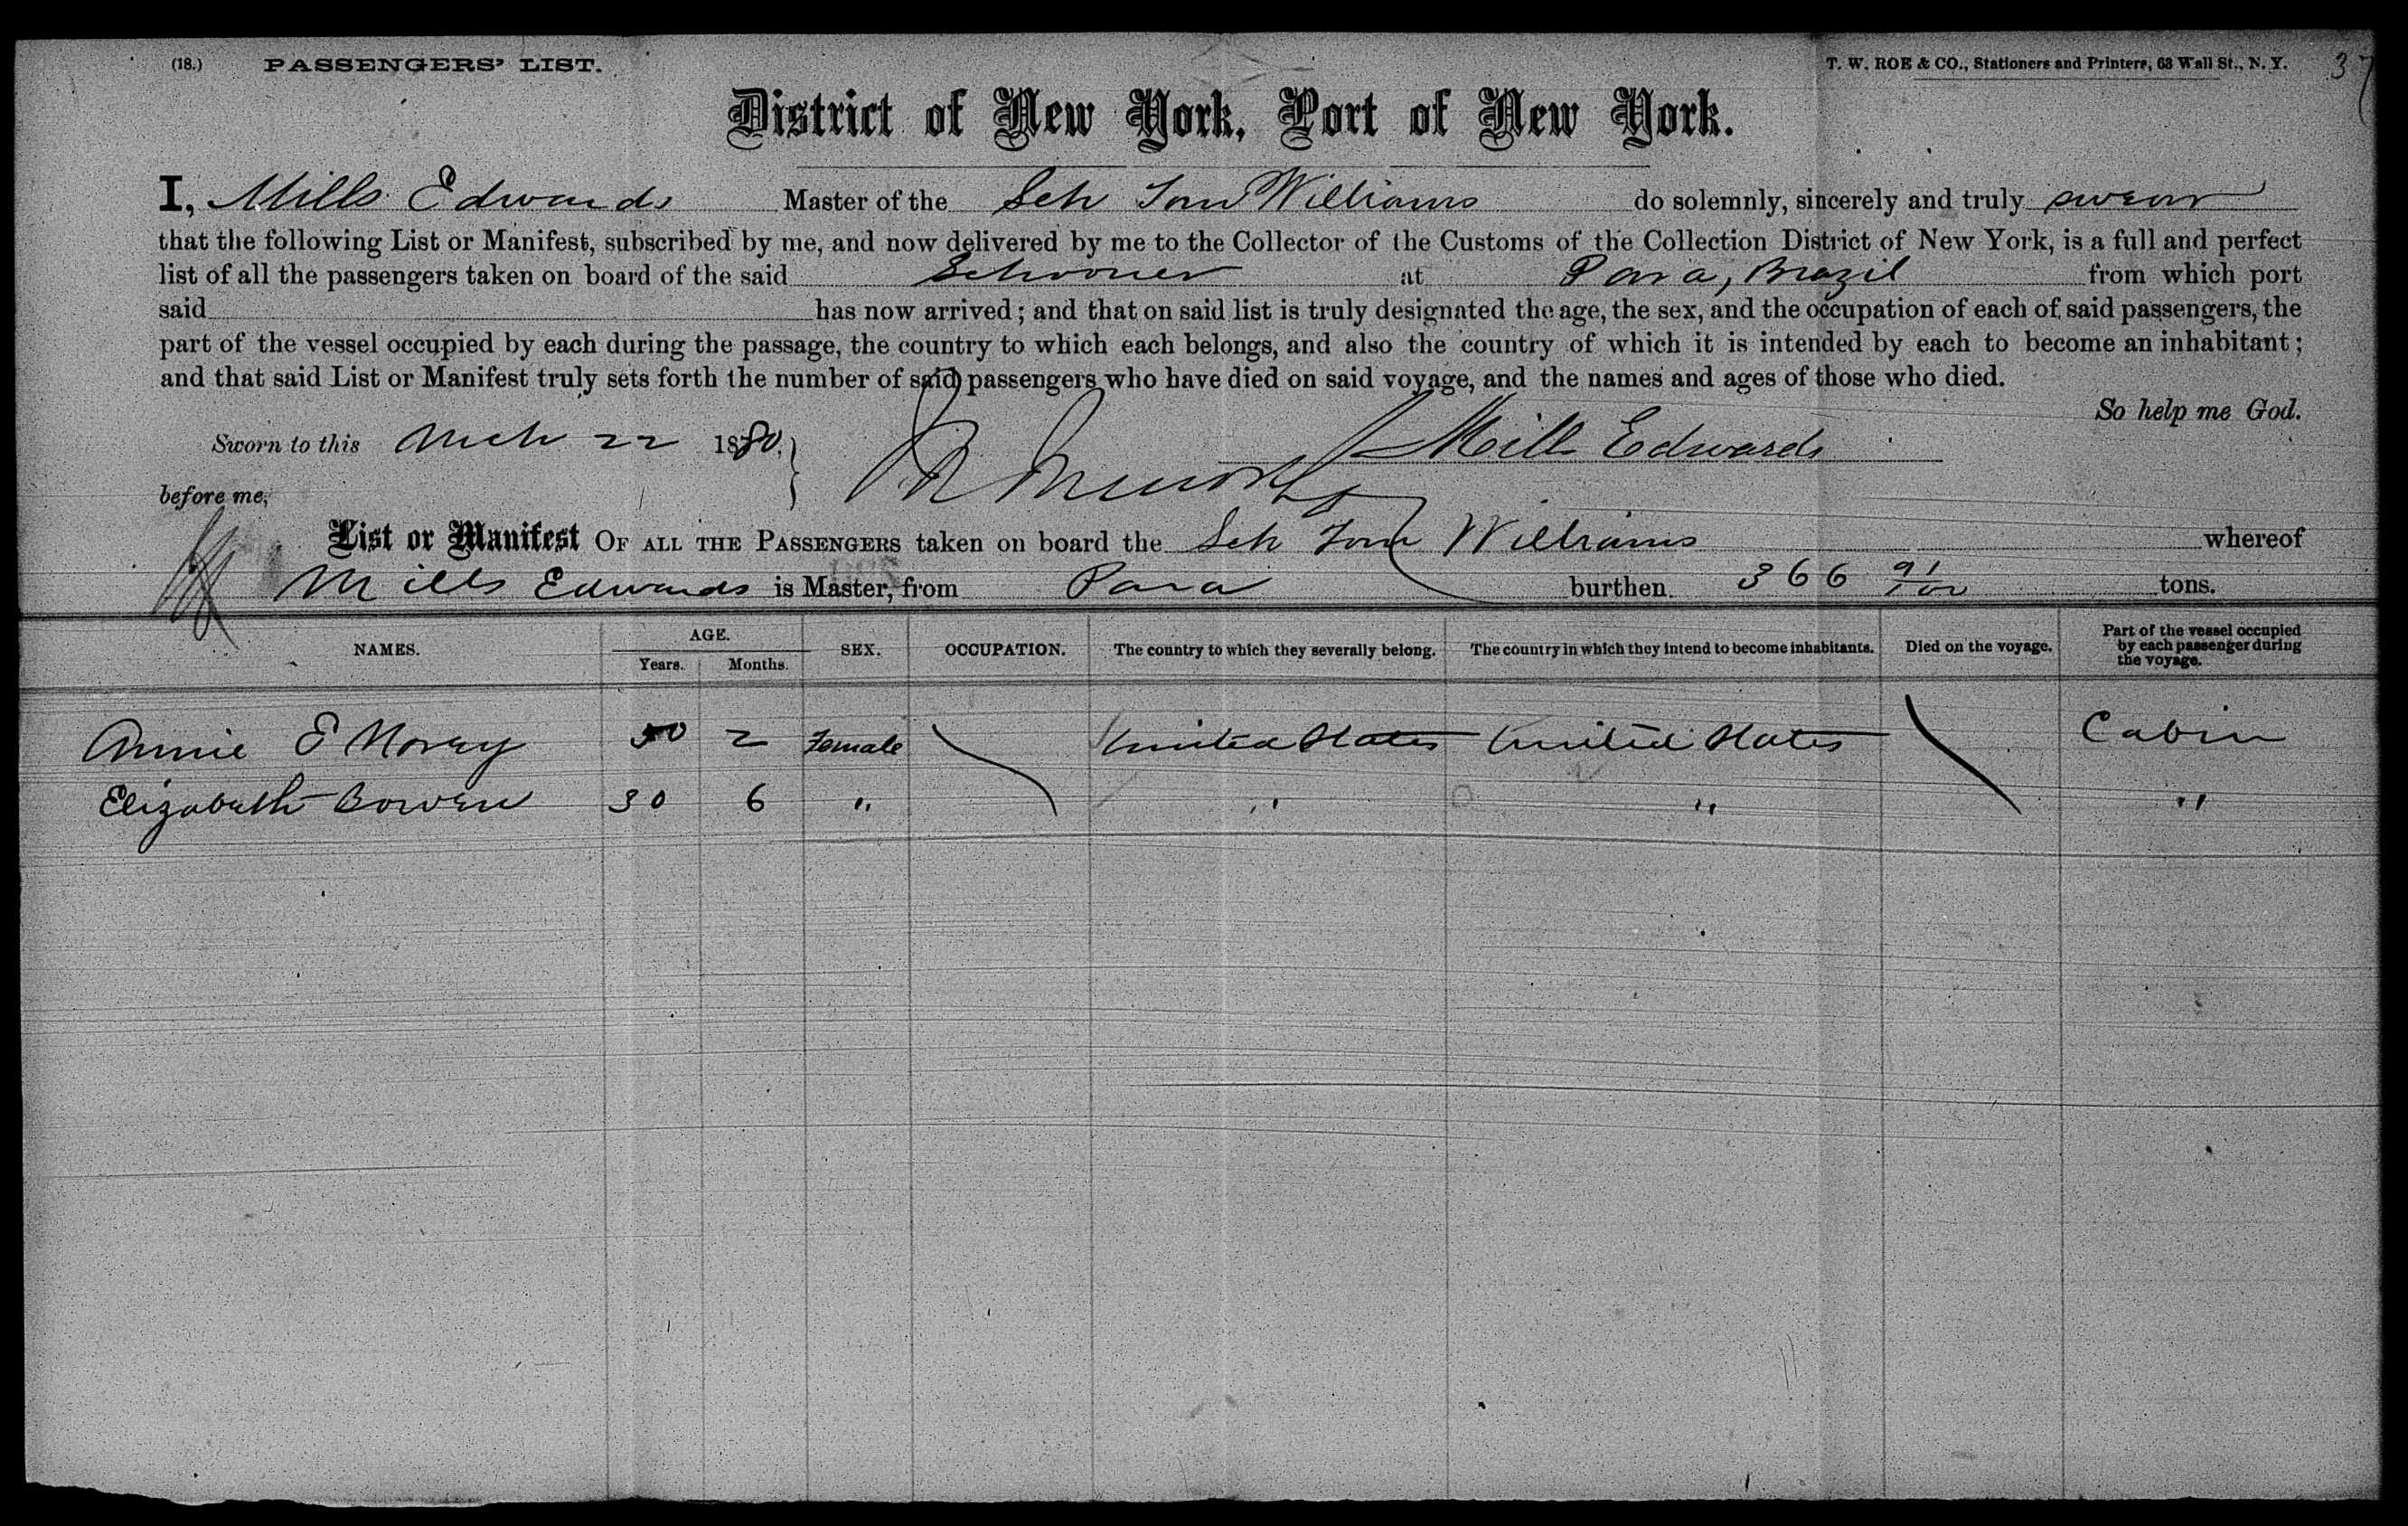 (18.) PASSENGERS' LIST. T. W. ROE & CO., Stationers and Printers, 63 Wall St., N. Y. 37
District of New York, Port of New York.
I, Mills Edwards Master of the Sch Tom Williams do solemnly, sincerely and truly swear
that the following List or Manifest, subscribed by me, and now delivered by me to the Collector of the Customs of the Collection District of New York, is a full and perfect
list of all the passengers taken on board of the said Schooner at Para, Brazil from which port
said has now arrived; and that on said list is truly designated the age, the sex, and the occupation of each of said passengers, the
part of the vessel occupied by each during the passage, the country to which each belongs, and also the country of which it is intended by each to become an inhabitant;
and that said List or Manifest truly sets forth the number of said passengers who have died on said voyage, and the names and ages of those who died.
So help me God.
Sworn to this Mch 22 1880. Mills Edwards
before me,
List or Manifest OF ALL THE PASSENGERS taken on board the Sch Tom Williams whereof
Mills Edwards is Master, from Para burthen 366 91/100 tons.
NAMES. AGE. Years. Months. SEX. OCCUPATION. The country to which they severally belong. The country in which they intend to become inhabitants. Died on the voyage. Part of the vessel occupied by each passenger during the voyage.
Annie E 2 Female United States United States Cabin
Elizabeth Bowen 30 6 " " " "